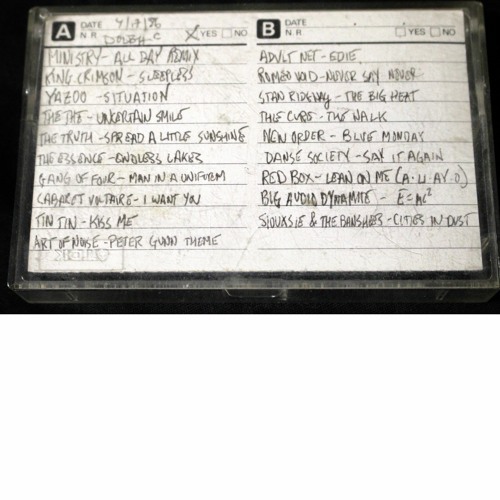 A DATE 4/17/86
N.R. DOLBY-C YES NO
MINISTRY - ALL DAY REMIX
KING CRIMSON - SLEEPLESS
YAZOO - SITUATION
THE THE - UNCERTAIN SMILE
THE TRUTH - SPREAD A LITTLE SUNSHINE
THE ESSENCE - ENDLESS LAKES
GANG OF FOUR - MAN IN A UNIFORM
CABARET VOLTAIRE - I WANT YOU
TIN TIN - KISS ME
ART OF NOISE - PETER GUNN THEME
B DATE
N.R. YES NO
ADULT NET - EDIE
ROMEO VOID - NEVER SAY NEVER
STAN RIDGWAY - THE BIG HEAT
THE CURE - THE WALK
NEW ORDER - BLUE MONDAY
DANSE SOCIETY - SAY IT AGAIN
RED BOX - LEAN ON ME (A·LI·AY·O)
BIG AUDIO DYNAMITE - E=MC²
SIOUXSIE & THE BANSHEES - CITIES IN DUST